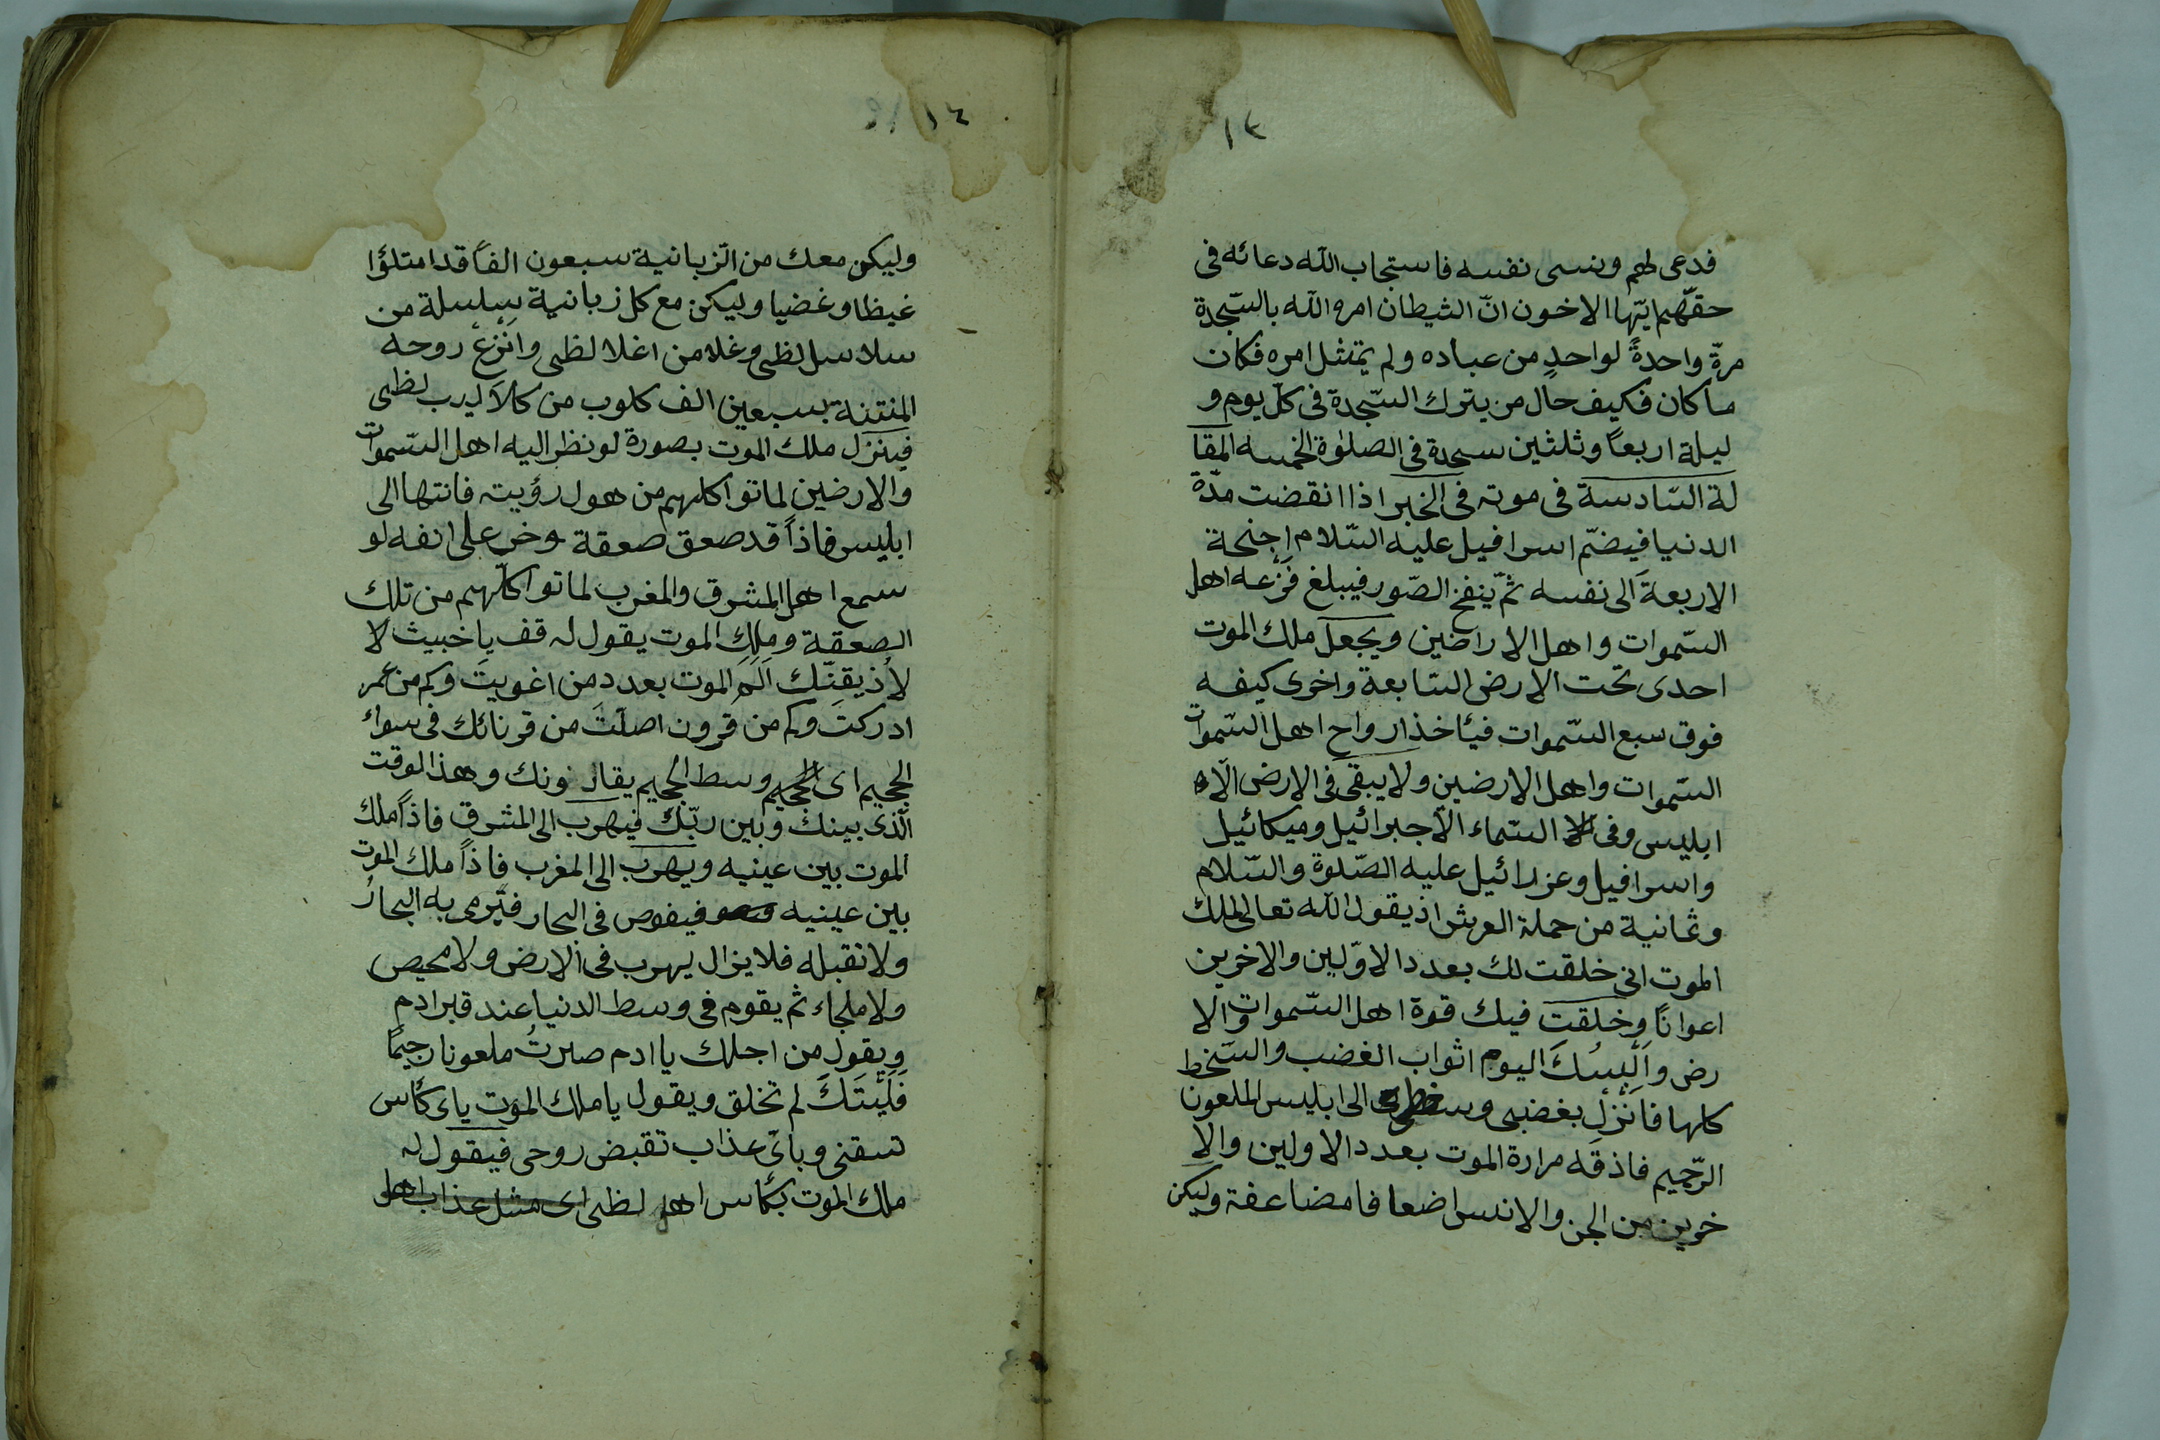 ١٣
فدعى لهم ونسى نفسه فاستجاب الله دعائه فى
حقّهم ايّها الاخون انّ الشيطان امره الله بالسّجدة
مرّة واحدةً لواحدٍ من عباده ولم يمتثل امره فكان
ما كان فكيف حال من يترك السّجدة فى كلّ يوم و
ليلة اربعاً وثلثين سجدة فى الصلوٰة الخمسه المقا
لة السّادسة فى موته فى الخبر اذا انقضت مدّة
الدنيا فيضمّ اسرافيل عليه السّلام اجنحة
الاربعةَ الى نفسه ثمّ ينفخ الصّور فيبلغ فَزْعه اهل
السّموات واهل الاراضين ويجعل ملك الموت
احدى تحت الارض السّابعة واخرى كيفه
فوق سبع السّموات فيأخذ ارواح اهل السّموات
السّموات واهل الارضين ولا يبقى فى الارض الّا
ابليس وفى السّماء الّا جبرائيل وميكائيل
واسرافيل وعزرائيل عليه الصّلوة والسّلام
وثمانية من حملة العرش اذ يقول الله تعالى لملك
الموت انى خلقت لك بعدد الاوّلين والاخرين
اعوانًا وخلقت فيك قوة اهل السّموات والا
رض واَلْبِسُكَ اليوم اثواب الغضب والسّخط
كلها فانْزِل بغضبى وسخطى الى ابليس الملعون
الرّجيم فاذقه مرارة الموت بعدد الاولين والا
خرين من الجن والانس اضعافا مضاعفة وليكن
١٤
وليكن معك من الزبانية سبعون الفاً قد امتلؤا
غيظا وغضبا وليكن مع كل زبانية سلسلة من
سلاسل لظى وغلا من اغلا لظى وانْزِعْ روحه
المنتنة بسبعين الف كلوب من كلاليب لظى
فينزل ملك الموت بصورة لو نظر اليه اهل السّموات
والارضين لماتوا كلهم من هول رؤيته فانتها الى
ابليس فاذاً قد صعق صعقة وخر على انفه لو
سمع اهل المشرق والمغرب لماتوا كلّهم من تلك
الصعقة وملك الموت يقول له قف يا خبيث لا
لاُذيقنّك اَلَمَ الموت بعدد من اغويتَ وكم من عمر
ادركتَ وكم من قرون اضلّتَ من قرنائك فى سواء
الجحيم اى وسط الجحيم يقارنونك وهذا الوقت
الّذى بينك وبين ربّك فيهرب الى المشرق فاذاً ملك
الموت بين عينيه ويهرب الى المغرب فاذاً ملك الموت
بين عينيه فيغوص فى البحار فيَرمى به البحارُ
ولا تقبله فلا يزال يهرب فى الارض ولا محيص
ولا ملجاء ثم يقوم فى وسط الدنيا عند قبر ادم
ويقول من اجلك يا ادم صرتُ ملعونا رجيمًا
فَلَيْتَكَ لم تخلق ويقول يا ملك الموت باى كأس
تسقنى وباىّ عذاب تقبض روحى فيقول له
ملك الموت بكأس اهل لظى اى مثل عذاب اهل